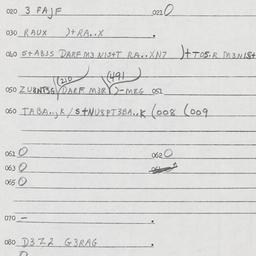 020 3 FAJF 021 0
030 RAUX )+RA..X
040 S+ABJS DARF M3 NIS+T RA..XN7 )+TOS.R M3NIS+
(210 (491
050 ZUBNTSG DARF M3R )-MRG 051
060 TABA..,K / S+NUSPT3BA..K (008 (009
061 0 062 0
063 0
065 0
070 –
080 D3Z2 G3RAG